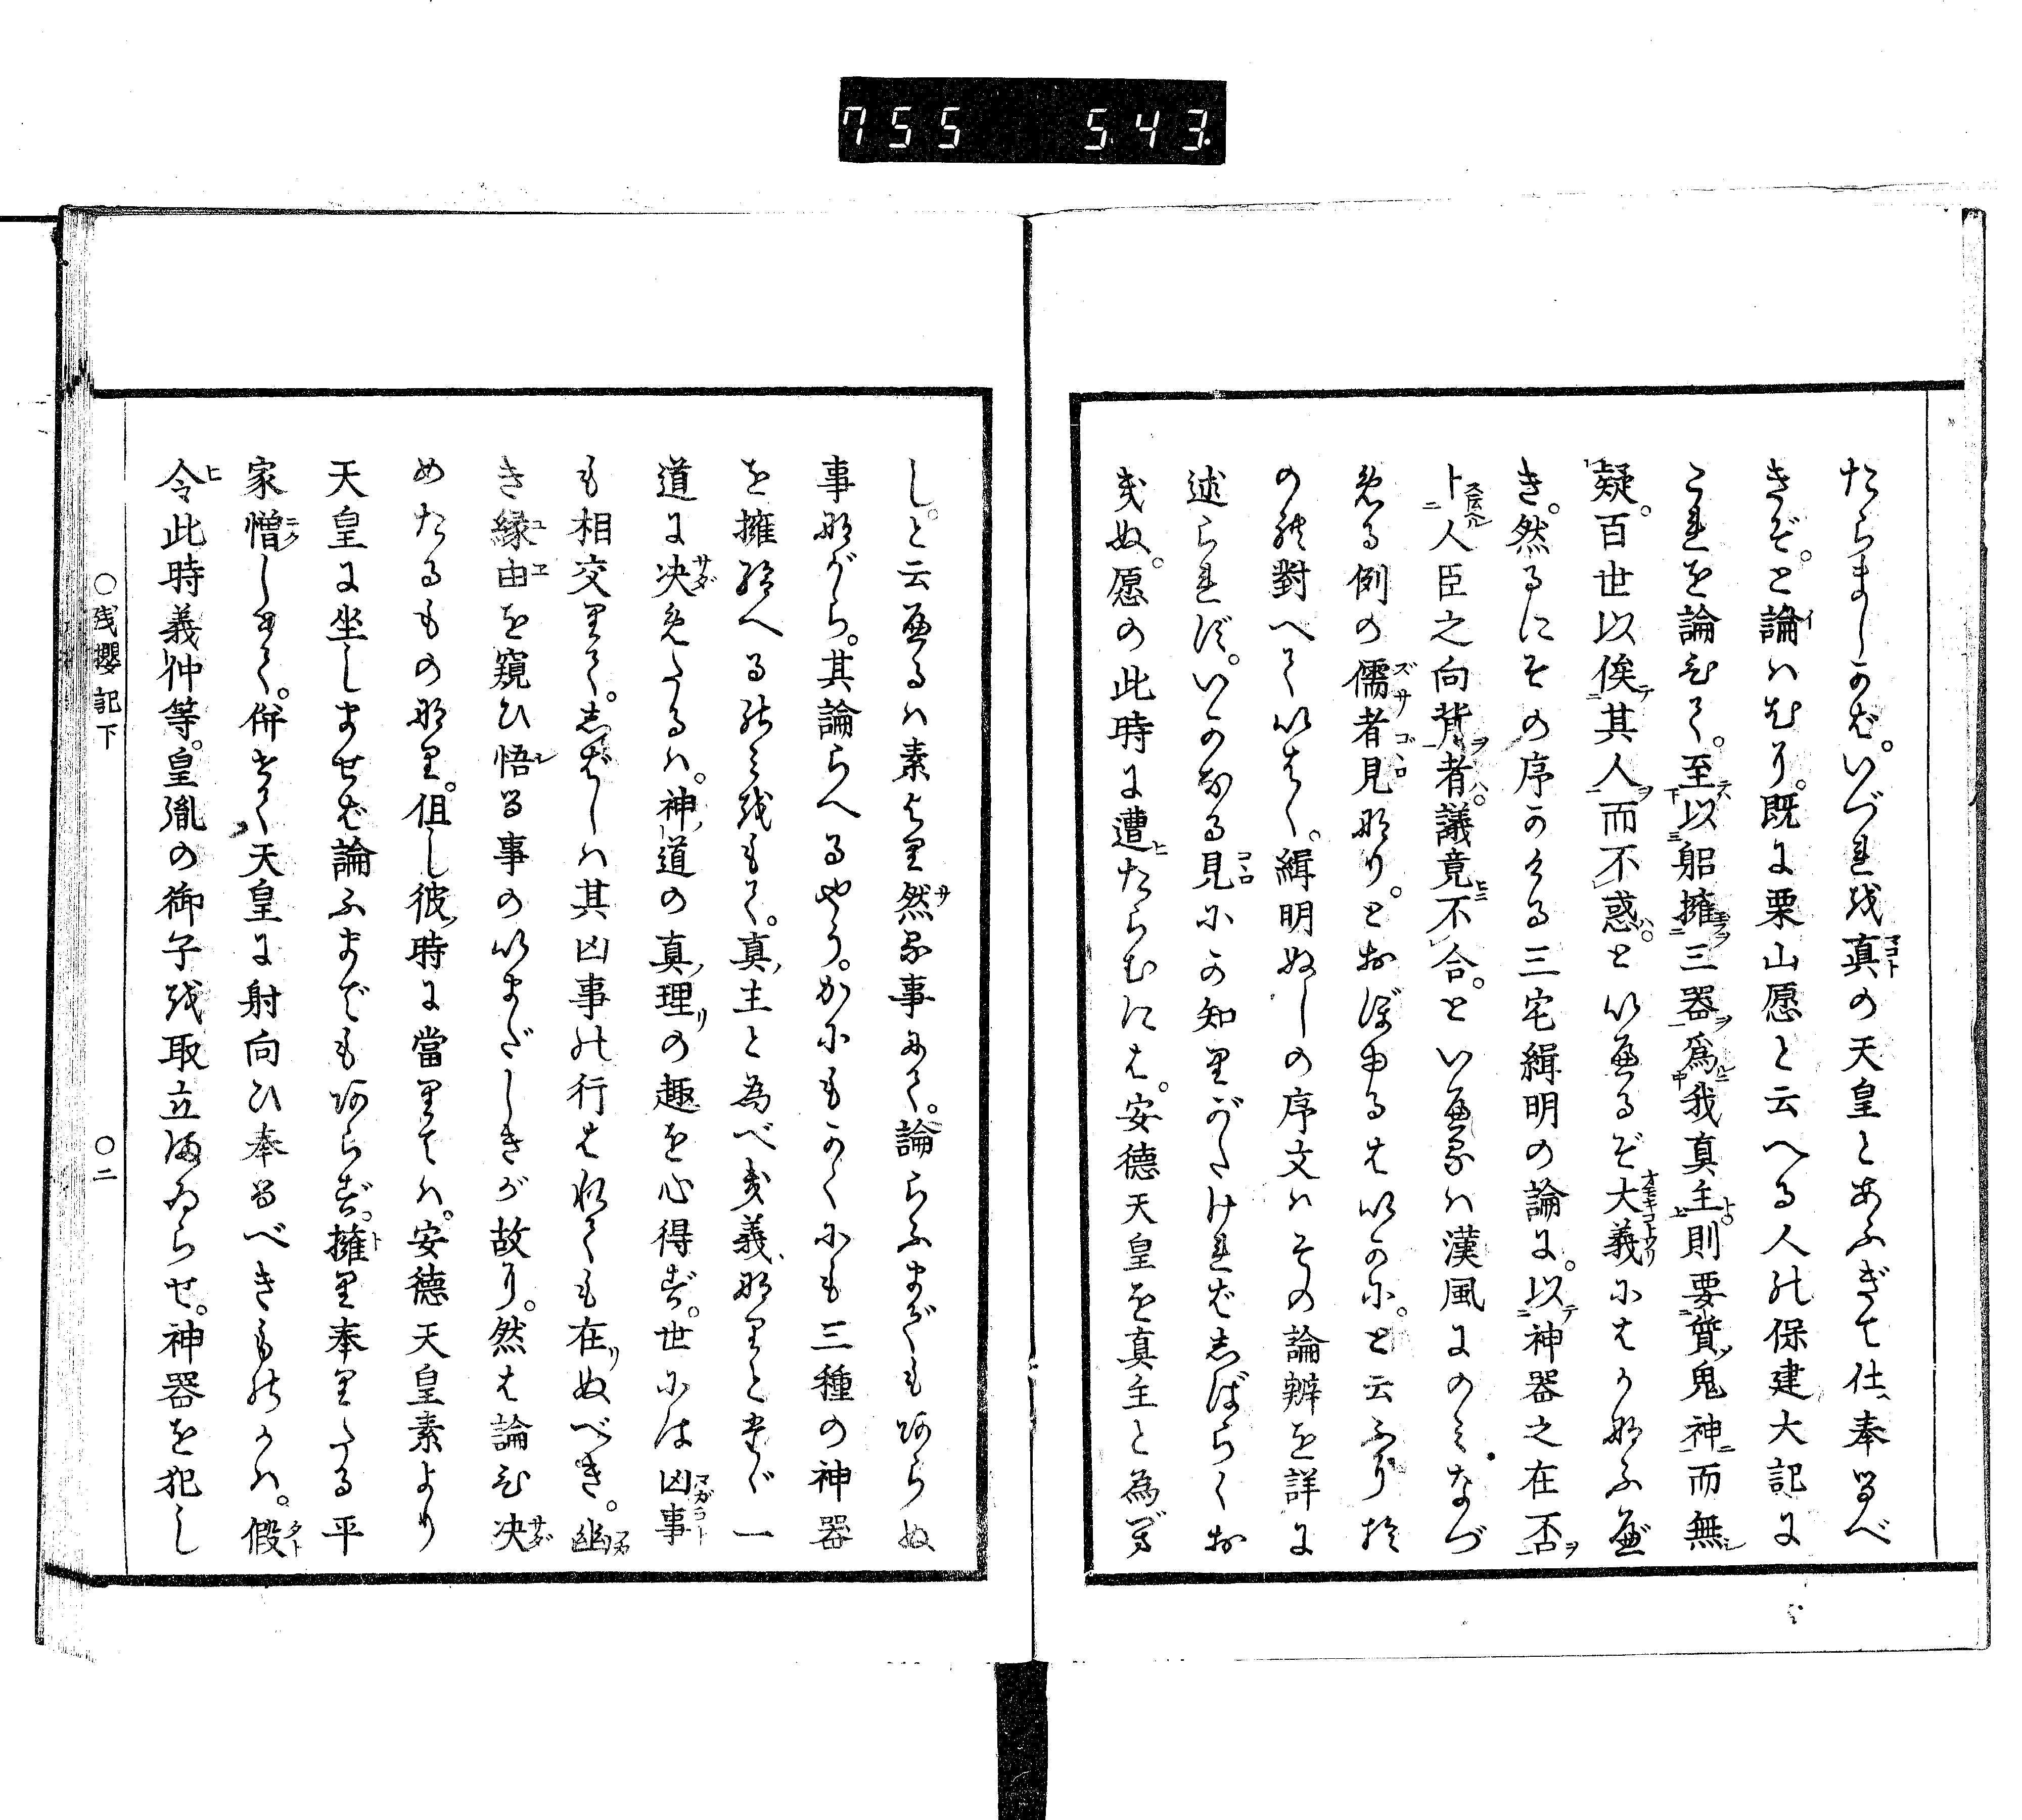 755 543.
たらましかば。いづれ越真の天皇とあふぎて仕奉るべ
きぞ。と論はむり。既に栗山愿と云へる人の保建大記に
これを論ひて。至以躬擁三器為我真主則要質鬼神而無
疑。百世以俟其人而不惑。といへるぞ大義にはかなふべ
き。然るにその序かける三宅緝明の論に。以神器之在否
卜人臣之向背者議竟不合。といへるは漢風にのみなづ
める例の儒者見なり。とおぼゆるはいかに。と云ふり
の対へていはく。緝明ぬしの序文はその論辨を詳に
述られず。いかなる見にか知りがたければしばらくお
きぬ。愿の此時に遭たらむには。安徳天皇を真主と為べ
し。と云へるは素より然る事にて。論らふまでも阿らぬ
事ながら。其論らへるやう。かにもかくにも三種の神器
を擁給へるのみをもて。真主と為べき義なりとまで一
道に決めたるは。神道の真理の趣を心得ず。世には凶事
も相交りて。志ばしは其凶事の行はれても在ぬべき。幽
き縁由を窺ひ悟る事のいまだしきが故り。然は論ひ決
めたるものなり。但し彼時に當りては。安徳天皇素より
天皇に坐しませば論ふまでも阿らず。擁り奉りたる平
家憎しとて。併せて天皇に射向ひ奉るべきものかは。假
令此時義仲等。皇胤の御子を取立まゐらせ。神器を犯し
○残櫻記下 ○二